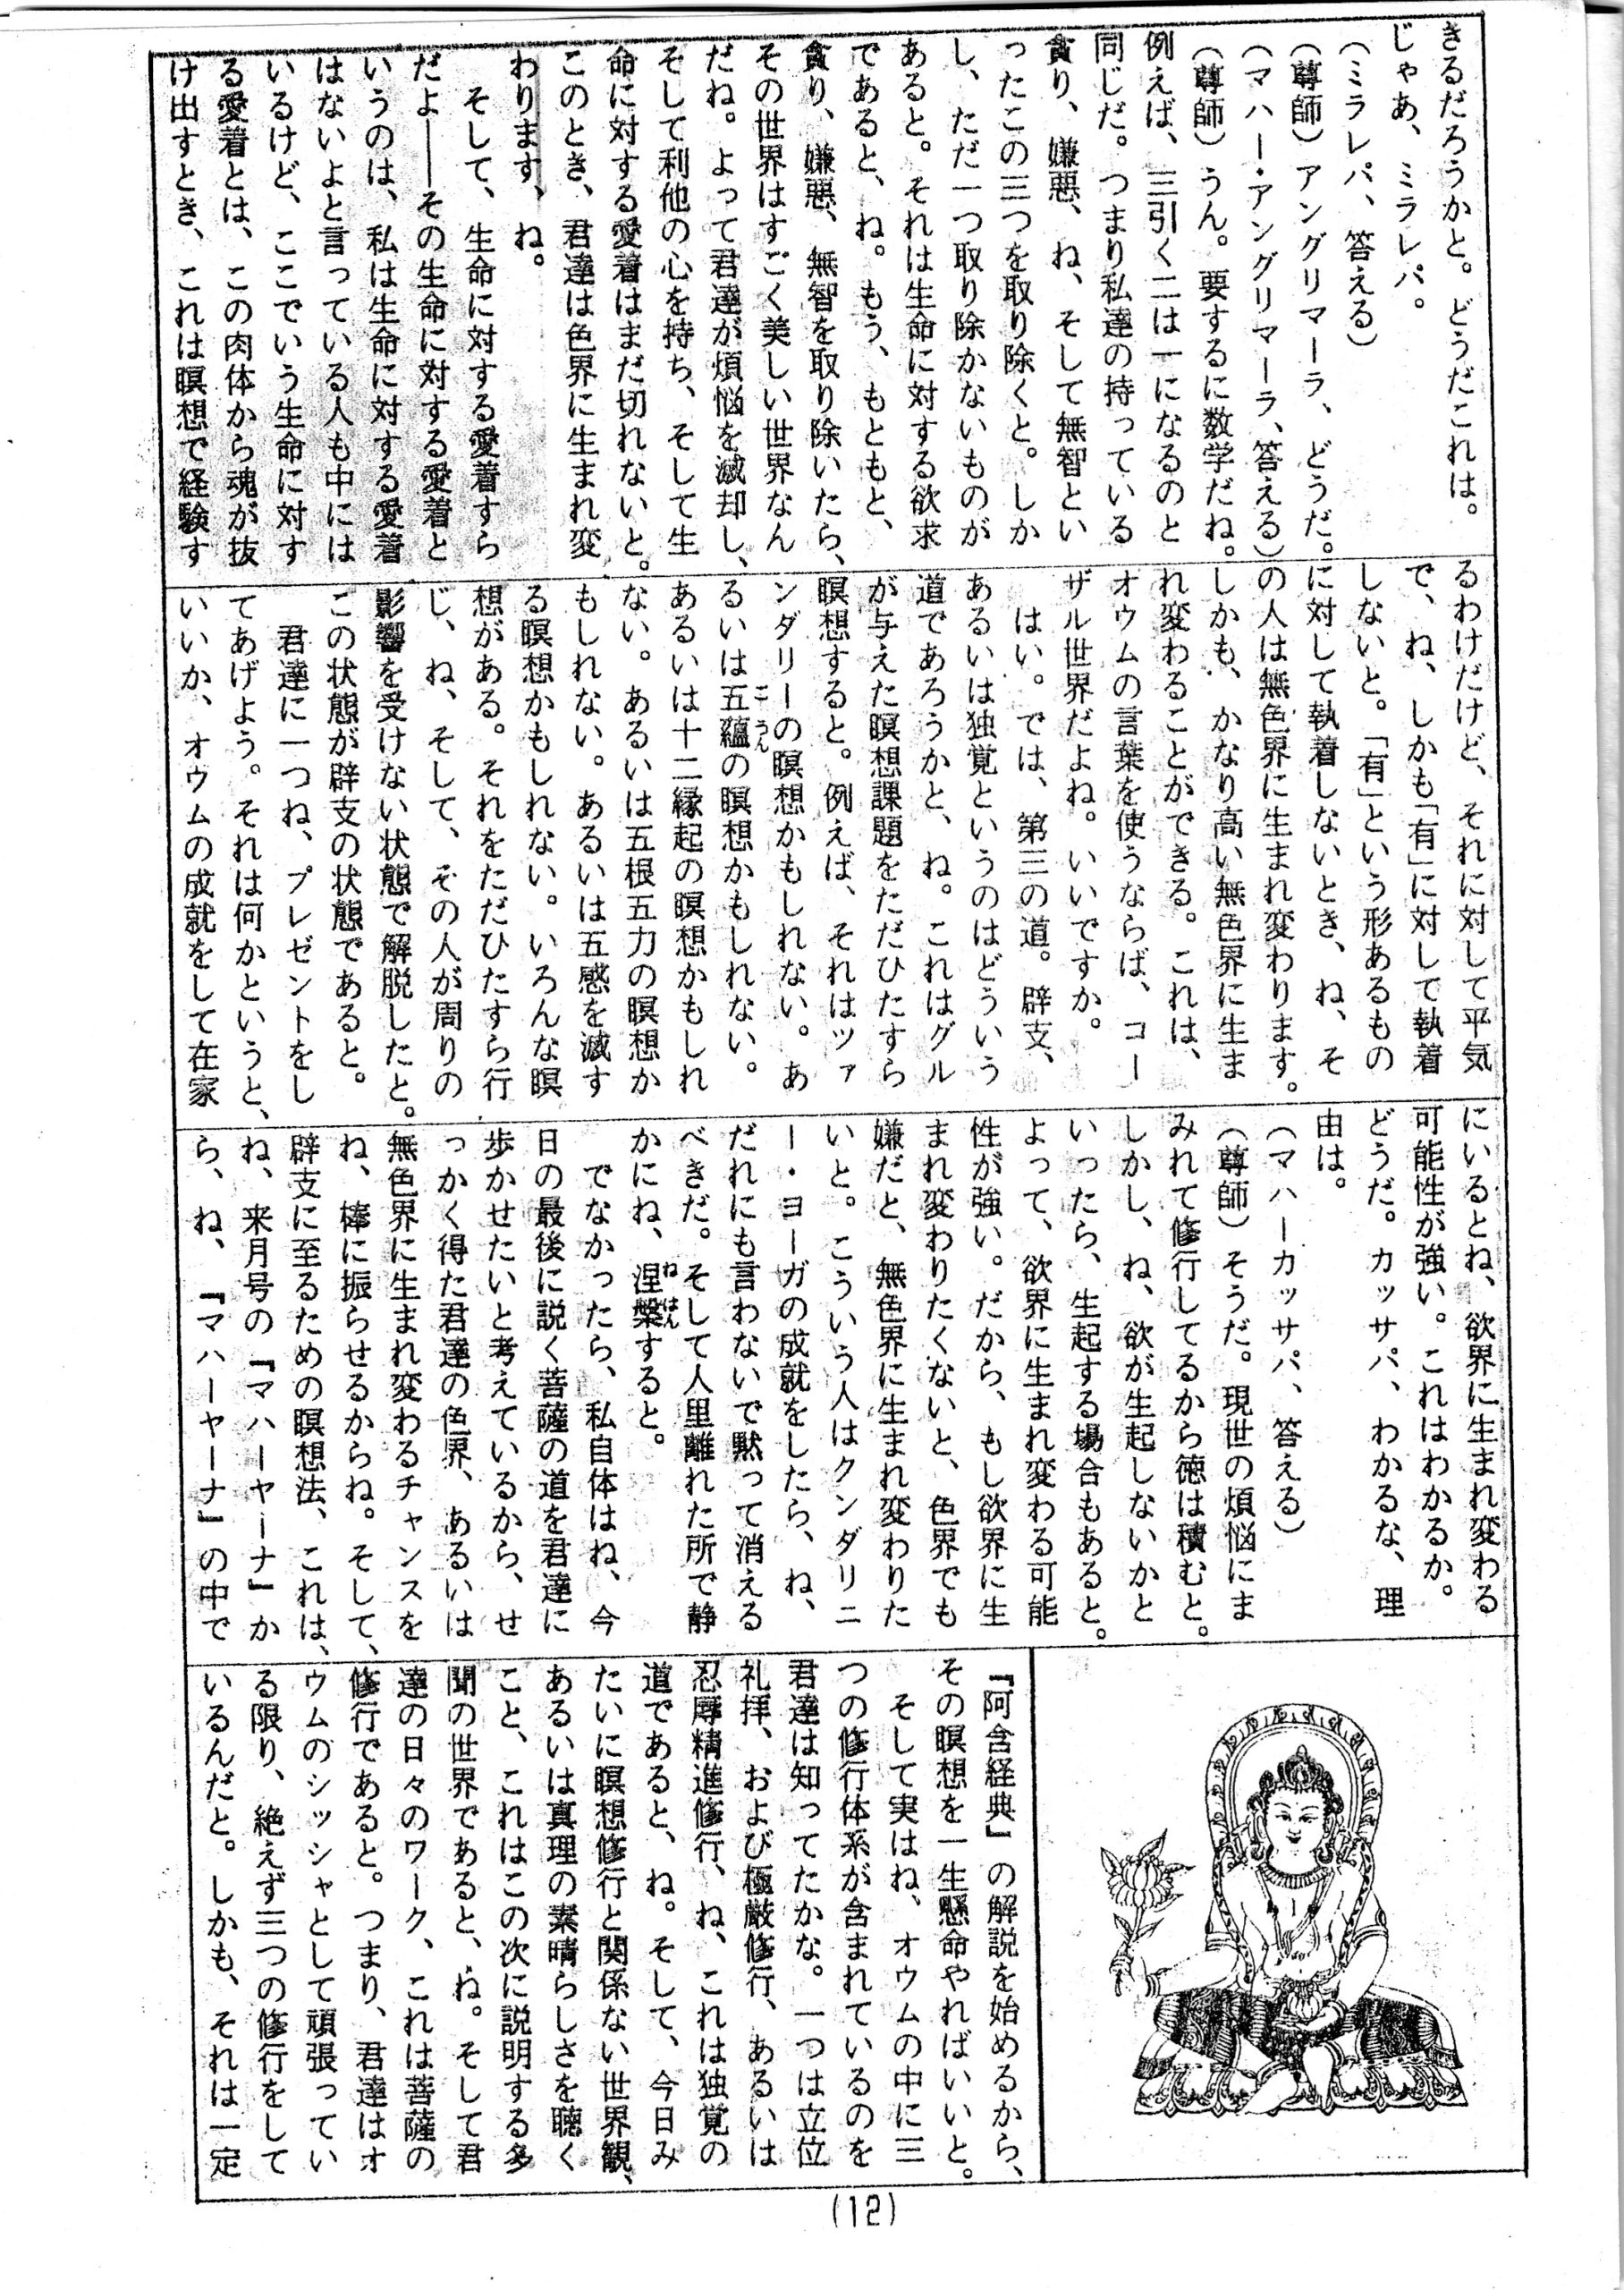 きるだろうかと。どうだこれは。
じゃあ、ミラレパ。
（ミラレパ、答える）
（尊師）アングリマーラ、どうだ。
（マハー・アングリマーラ、答える）
（尊師）うん。要するに数学だね。
例えば、三引く二は一になるのと
同じだ。つまり私達の持っている
貪り、嫌悪、ね、そして無智とい
ったこの三つを取り除くと。しか
し、ただ一つ取り除かないものが
あると。それは生命に対する欲求
であると、ね。もう、もともと、
貪り、嫌悪、無智を取り除いたら、
その世界はすごく美しい世界なん
だね。よって君達が煩悩を滅却し、
そして利他の心を持ち、そして生
命に対する愛着はまだ切れないと。
このとき、君達は色界に生まれ変
わります、ね。
そして、生命に対する愛着すら
だよ——その生命に対する愛着と
いうのは、私は生命に対する愛着
はないよと言っている人も中には
いるけど、ここでいう生命に対す
る愛着とは、この肉体から魂が抜
け出すとき、これは瞑想で経験す
るわけだけど、それに対して平気
で、ね、しかも「有」に対して執着
しないと。「有」という形あるもの
に対して執着しないとき、ね、そ
の人は無色界に生まれ変わります。
しかも、かなり高い無色界に生ま
れ変わることができる。これは、
オウムの言葉を使うならば、コー
ザル世界だよね。いいですか。
はい。では、第三の道。辟支、
あるいは独覚というのはどういう
道であろうかと、ね。これはグル
が与えた瞑想課題をただひたすら
瞑想すると。例えば、それはツァ
ンダリーの瞑想かもしれない。あ
るいは五蘊の瞑想かもしれない。
こうん
あるいは十二縁起の瞑想かもしれ
ない。あるいは五根五力の瞑想か
もしれない。あるいは五感を滅す
る瞑想かもしれない。いろんな瞑
想がある。それをただひたすら行
じ、ね、そして、その人が周りの
影響を受けない状態で解脱したと。
この状態が辟支の状態であると。
君達に一つね、プレゼントをし
てあげよう。それは何かというと、
いいか、オウムの成就をして在家
にいるとね、欲界に生まれ変わる
可能性が強い。これはわかるか。
どうだ。カッサパ、わかるな、理
由は。
（マハーカッサパ、答える）
（尊師）そうだ。現世の煩悩にま
みれて修行してるから徳は積むと。
しかし、ね、欲が生起しないかと
いったら、生起する場合もあると。
よって、欲界に生まれ変わる可能
性が強い。だから、もし欲界に生
まれ変わりたくないと、色界でも
嫌だと、無色界に生まれ変わりた
いと。こういう人はクンダリニ
ー・ヨーガの成就をしたら、ね、
だれにも言わないで黙って消える
べきだ。そして人里離れた所で静
かにね、涅槃すると。
ねはん
でなかったら、私自体はね、今
日の最後に説く菩薩の道を君達に
歩かせたいと考えているから、せ
っかく得た君達の色界、あるいは
無色界に生まれ変わるチャンスを
ね、棒に振らせるからね。そして、
辟支に至るための瞑想法、これは、
ね、来月号の『マハーヤーナ』か
ら、ね、『マハーヤーナ』の中で
『阿含経典』の解説を始めるから、
その瞑想を一生懸命やればいいと。
そして実はね、オウムの中に三
つの修行体系が含まれているのを
君達は知ってたかな。一つは立位
礼拝、および極厳修行、あるいは
忍辱精進修行、ね、これは独覚の
道であると、ね。そして、今日み
たいに瞑想修行と関係ない世界観、
あるいは真理の素晴らしさを聴く
こと、これはこの次に説明する多
聞の世界であると、ね。そして君
達の日々のワーク、これは菩薩の
修行であると。つまり、君達はオ
ウムのシッシャとして頑張ってい
る限り、絶えず三つの修行をして
いるんだと。しかも、それは一定
(12)